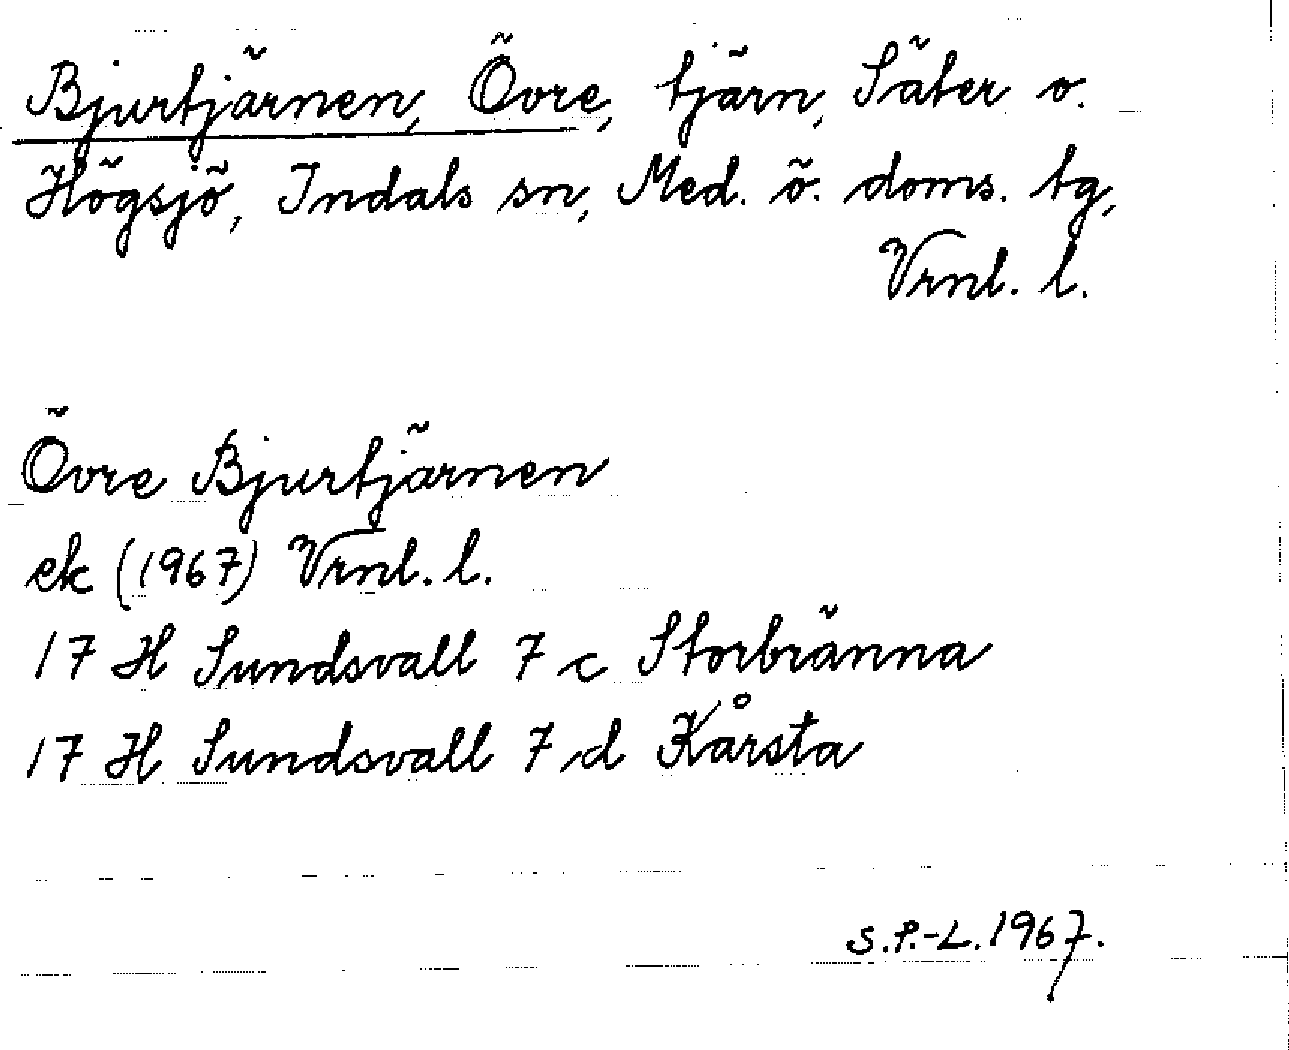 Bjurtjärnen, Övre, tjärn, Säter o.
Högsjö, Indals sn, Med. ö. doms. tg,
Vrnl. l.
Övre Bjurtjärnen
ek (1967) Vrnl. l.
17 H Sundsvall 7 c Storbränna
17 H Sundsvall 7 d Kårsta
S.P.-L. 1967.